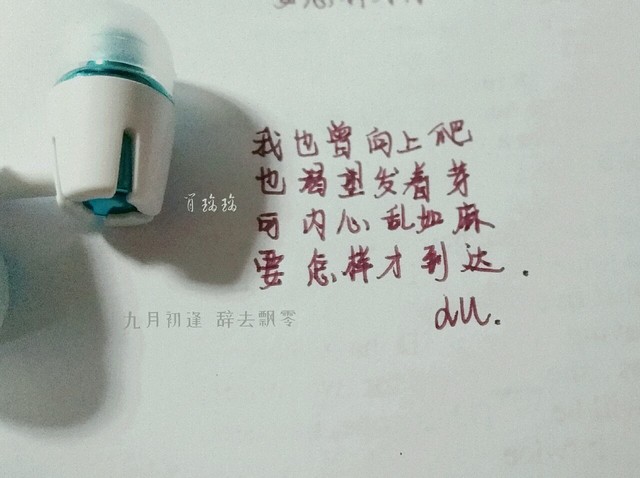 我也曾向上爬
也渴望发着芽
肖瑶瑶
可内心乱如麻
要怎样才到达.
九月初逢 辞去飘零
du.